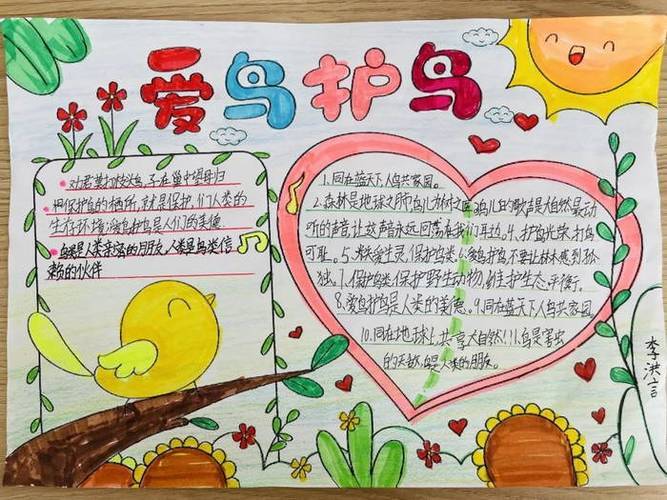 爱鸟护鸟
劝君莫打枝头鸟,子在巢中望母归
保护鸟的栖所,就是保护,们人类的
生存环境,爱鸟护鸟是人们的美德
鸟类是人类亲密的朋友,人类是鸟类信
赖的伙伴
1.同在蓝天下人鸟共家园。
2.森林是地球之肺鸟儿为树之医3鸟儿的歌声是大自然最动
听的声音让歌声永远回荡在我们耳边。4、护鸟光荣,打鸟
可耻。5、关爱生灵,保护鸟类。6.爱鸟护鸟,不要让林木感到孤
独。7、保护鸟类,保护野生动物,维护生态平衡。
8.爱鸟护鸟是人类的美德。9.同在蓝天下人鸟共家园。
10.同在地球上共享大自然!11.鸟是害虫
的天敌,鸟是人类的朋友。
李洪言